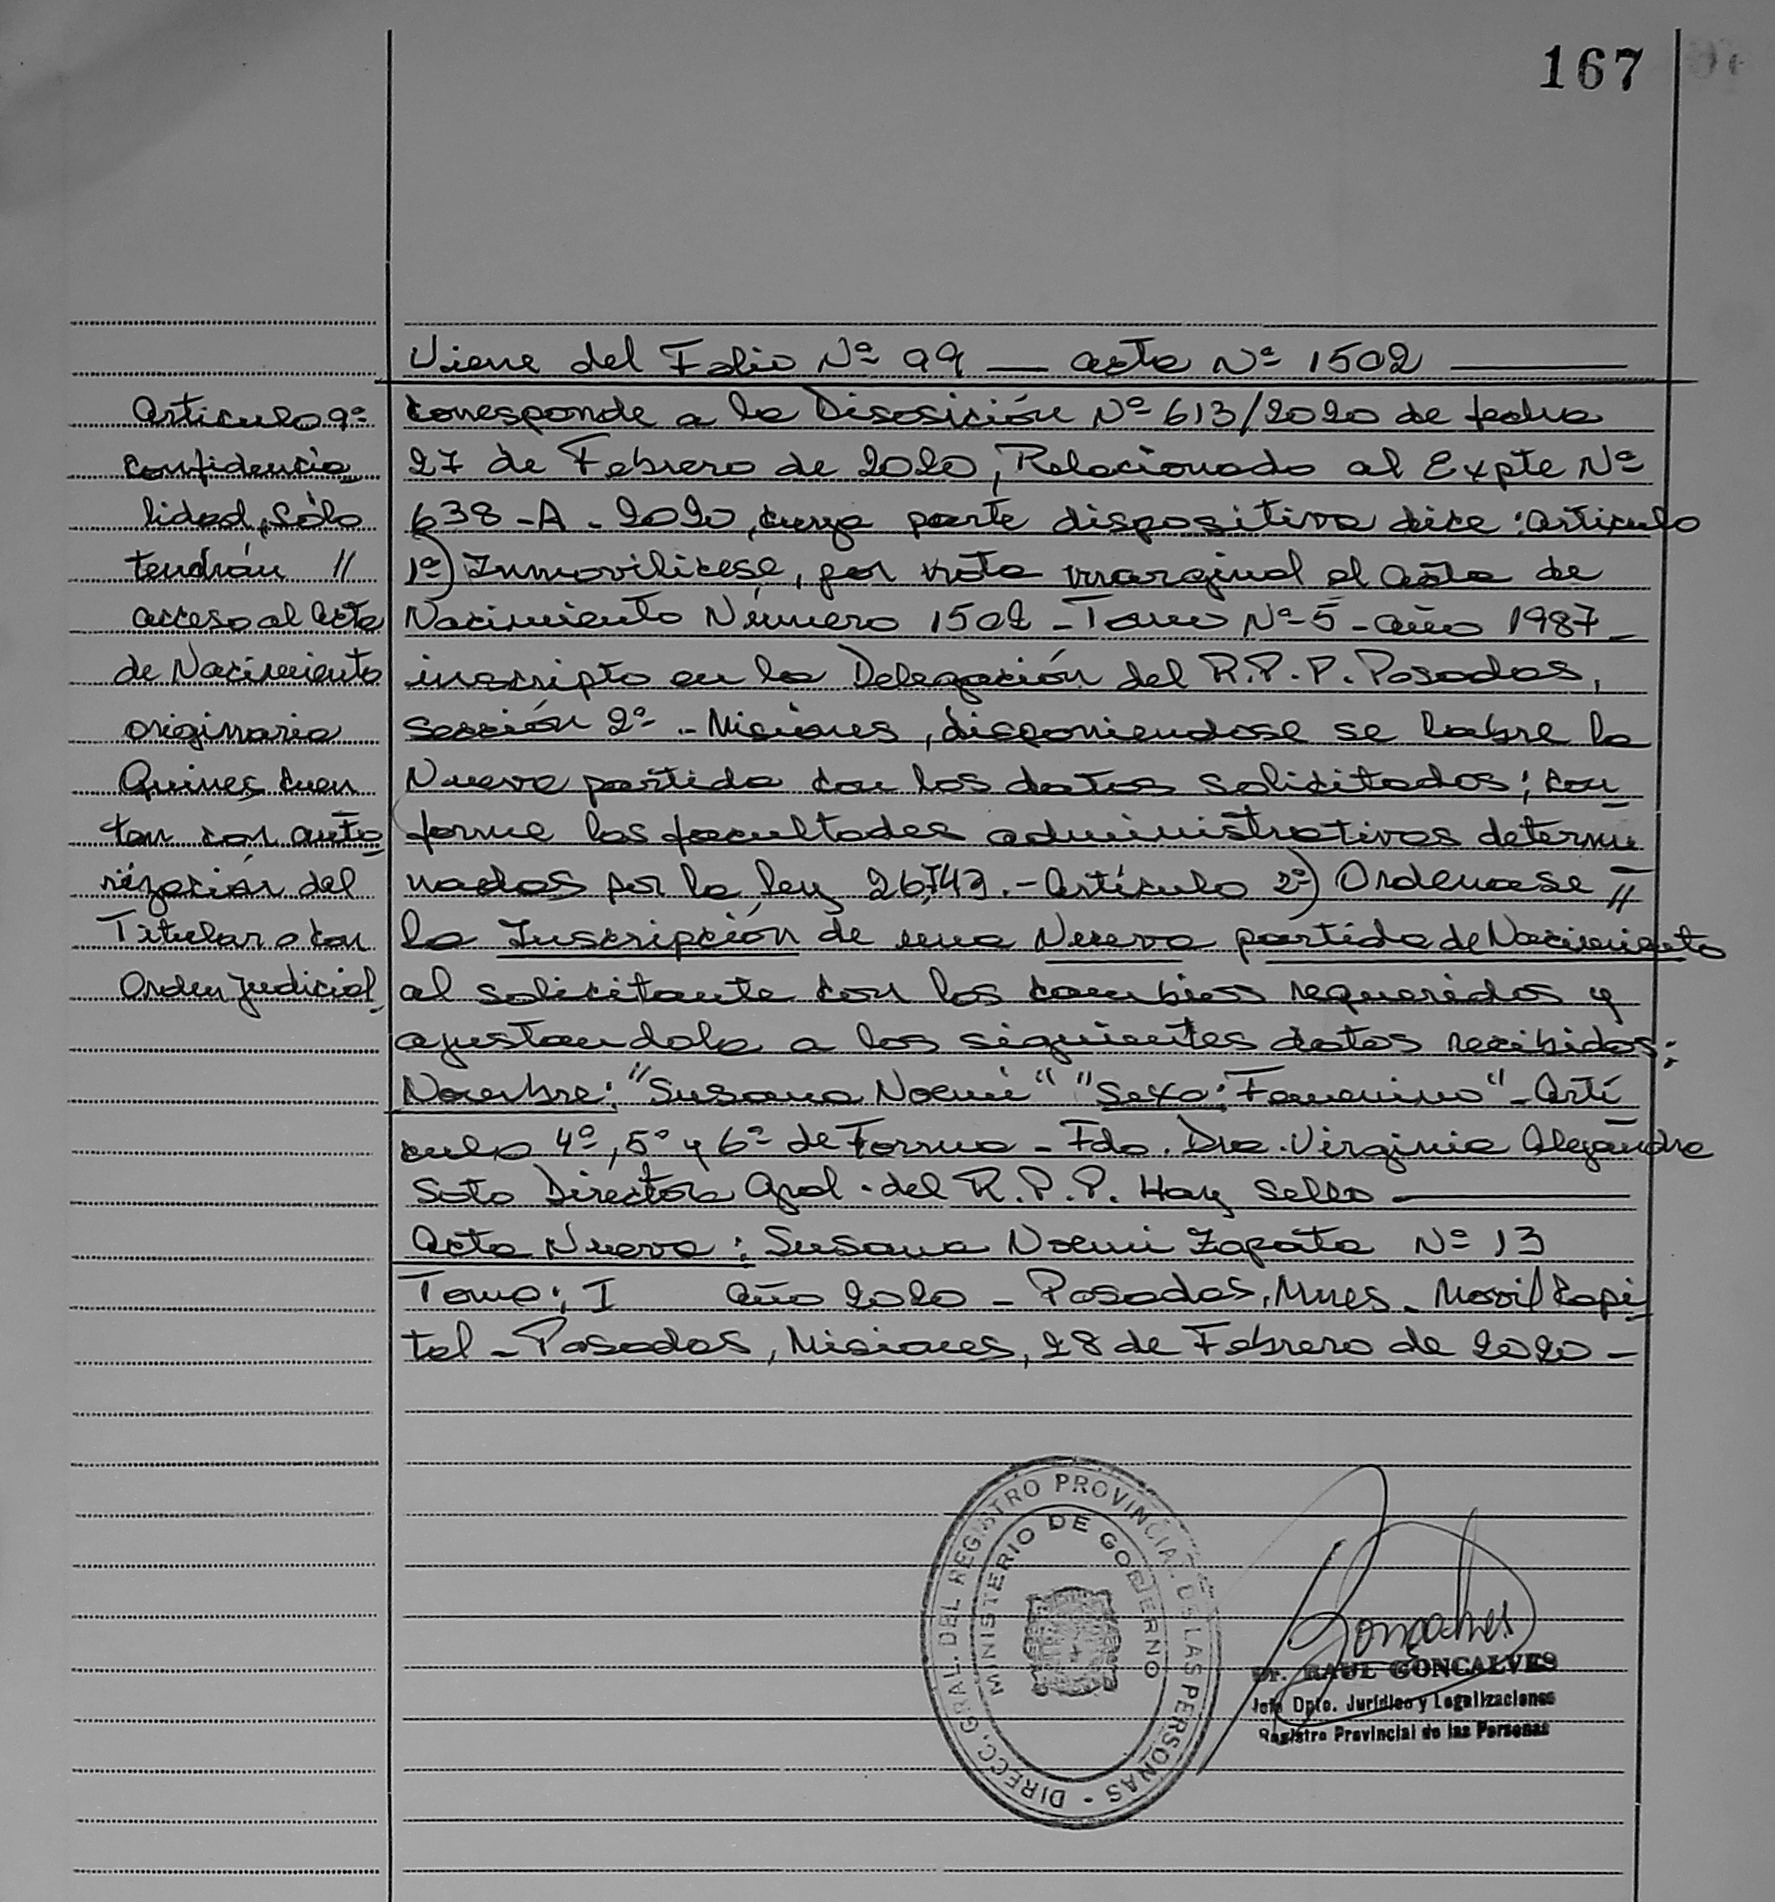 167
Viene del Folio Nº 99 — acta Nº 1502 —
Articulo 9º
Confidencia
lidad, Sólo
tendrán //
acceso al acta
de Nacimiento
originaria
Quines cuen
tan con auto
rización del
Titular o con
Orden Judicial
Corresponde a la Disosición Nº 613/2020 de fecha
27 de Febrero de 2020, Relacionado al Expte Nº
638-A-2020, cuya parte dispositiva dice: articulo
1º) Inmovilicese, por nota marginal el acta de
Nacimiento Número 1502 - Tomo Nº 5 - año 1987 -
inscripto en la Delegación del R.P.P. Posadas,
Sección 2º - Misiones, disponiendose se labre la
Nueva partida con los datos solicitados; con
forme las facultades administrativas determi
nadas por la ley 26743.- Artículo 2º) Ordenase //
la Inscripción de una Nueva partida de Nacimiento
al solicitante con los cambios requeridos y
ajustandola a los siguientes datos recibidos:
Nombre: "Susana Noemí" "Sexo: Femenino" - Artí
culo 4º, 5º y 6º de Forma - Fdo. Dra. Virginia Alejandra
Soto Directora Gral. del R.P.P. Hay Sello —
Acta Nueva: Susana Noemi Zapata Nº 13
Tomo: I año 2020 - Posadas, Mnes - Movil Capi
tal - Posadas, Misiones, 28 de Febrero de 2020 -
DIRECC. GRAL. DEL REGISTRO PROVINCIAL DE LAS PERSONAS -
MINISTERIO DE GOBIERNO
Dr. RAUL GONCALVES
Jefe Dpto. Jurídico y Legalizaciones
Registro Provincial de las Personas